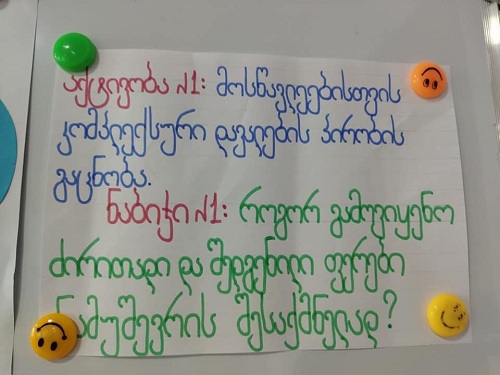 აქტივობა N1: მოსწავლეებისთვის
კომპლექსური დავალების პირობის
გაცნობა.
ნაბიჯი N1: როგორ გამოვიყენო
ძირითადი და შედგენილი ფერები
ნამუშევრის შესაქმნელად?